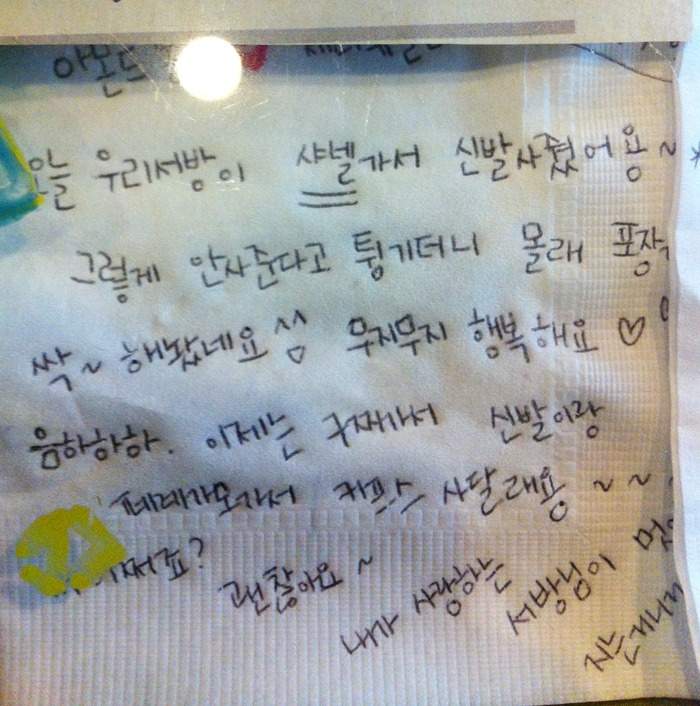 아몬드
오늘 우리서방이 샤넬가서 신발사줬어용~
그렇게 안사준다고 튕기더니 몰래 포장
싹~ 해놨네요 ^^ 무지무지 행복해요 ♡
음하하하. 이제는 구찌가서 신발이랑
페레가모가서 사달래용 ~~
괜찮아요~
내가 사랑하는
서방님이